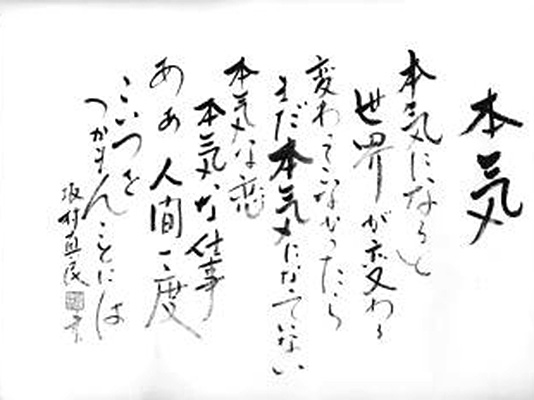 本気
本気になると
世界が変わる
変わってこなかったら
まだ本気になってない
本気な恋
本気な仕事
ああ人間一度
こいつを
つかまんことには
坂村真民